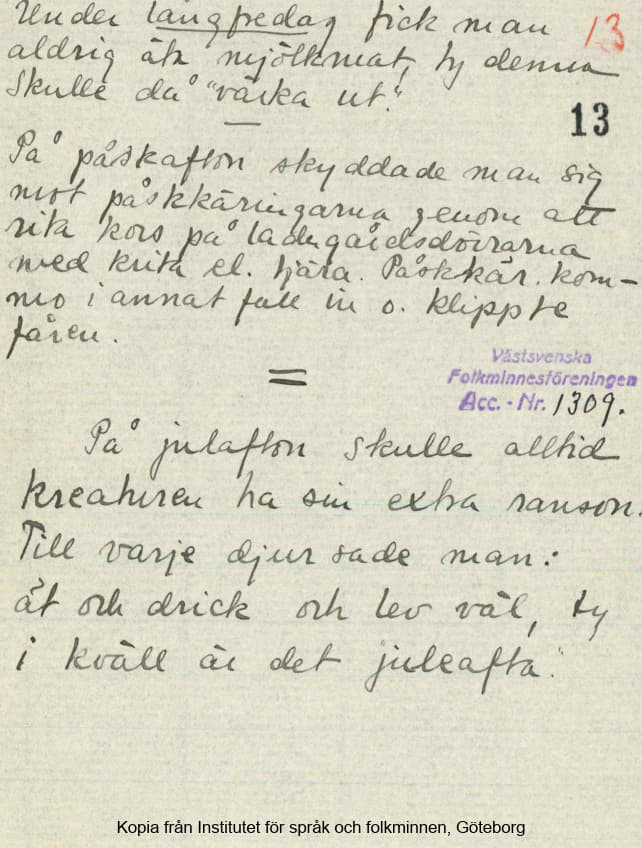 Under långfredag fick man
13
aldrig äta mjölkmat, ty denna
skulle då "värka ut".
13
På påskafton skyddade man sig
mot påskkäringarna genom att
rita kors på ladugårdsdörrarna
med krita el. tjära. Påskkär. kom-
mo i annat fall in o. klippte
fåren.
Västsvenska
Folkminnesföreningen
Acc. - Nr. 1309.
På julafton skulle alltid
kreaturen ha sin extra ranson.
Till varje djur sade man:
ät och drick och lev väl, ty
i kväll är det juleafta."
Kopia från Institutet för språk och folkminnen, Göteborg